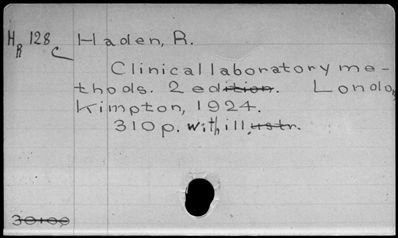 H R 128 C
Haden, R.
Clinical laboratory me-
thods. 2 edition. London
Kimpton, 1924.
310 p. with illustr.
30100